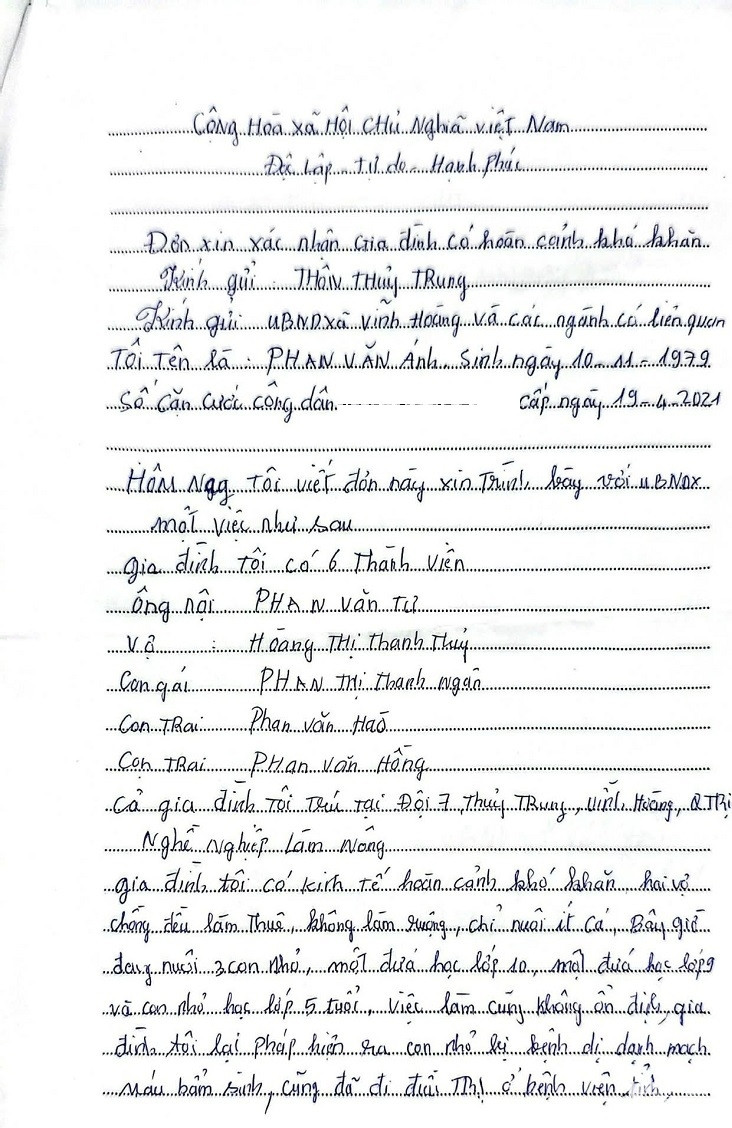 Cộng Hoà xã Hội CHủ Nghiã việT Nam
Độc Lập - Tự do - Hạnh phúc
Đơn xin xác nhận Gia đình có hoàn cảnh khó khăn
Kính gửi : THôN THuỷ TRung
Kính gửi uBND xã vĩnh Hoàng và các ngành có liên quan
Tôi Tên là : PHAN VĂN Ánh. Sinh ngày 10-11-1979
Số Căn cước công dân cấp ngày 19-4-2021
Hôm Nay Tôi viết đơn này xin Trình bày với uBNDX
một việc như sau
gia đình tôi có 6 Thành viên
ông nội PHAN Văn Tư
Vợ : Hoàng THị Thanh Thuỷ
Con gái PHAN THị Thanh ngân
Con TRai Phan văn Haỏ
Con TRai PHan văn Hồng
Cả gia đình Tôi Trú tại Đội 7, Thuỷ TRung, Vĩnh Hoàng, Q.TRị
Nghề Nghiệp Làm Nông
gia đình tôi có Kinh Tế hoàn cảnh khó khăn, hai vợ
chồng đều làm Thuê, không làm ruộng, chỉ nuôi ít Cá, Bây giờ
đang nuôi 3 con Nhỏ, một đứá học lớp 10, một đứá học lớp 9
và con nhỏ học lớp 5 tuổi, Việc làm cũng không ổn định, gia
đình tôi lại Pháp hiện ra con nhỏ bị bệnh dị dạnh mạch
Máu bẩm sinh, cũng đã đi điều TRị ở bệnh viện tỉnh,